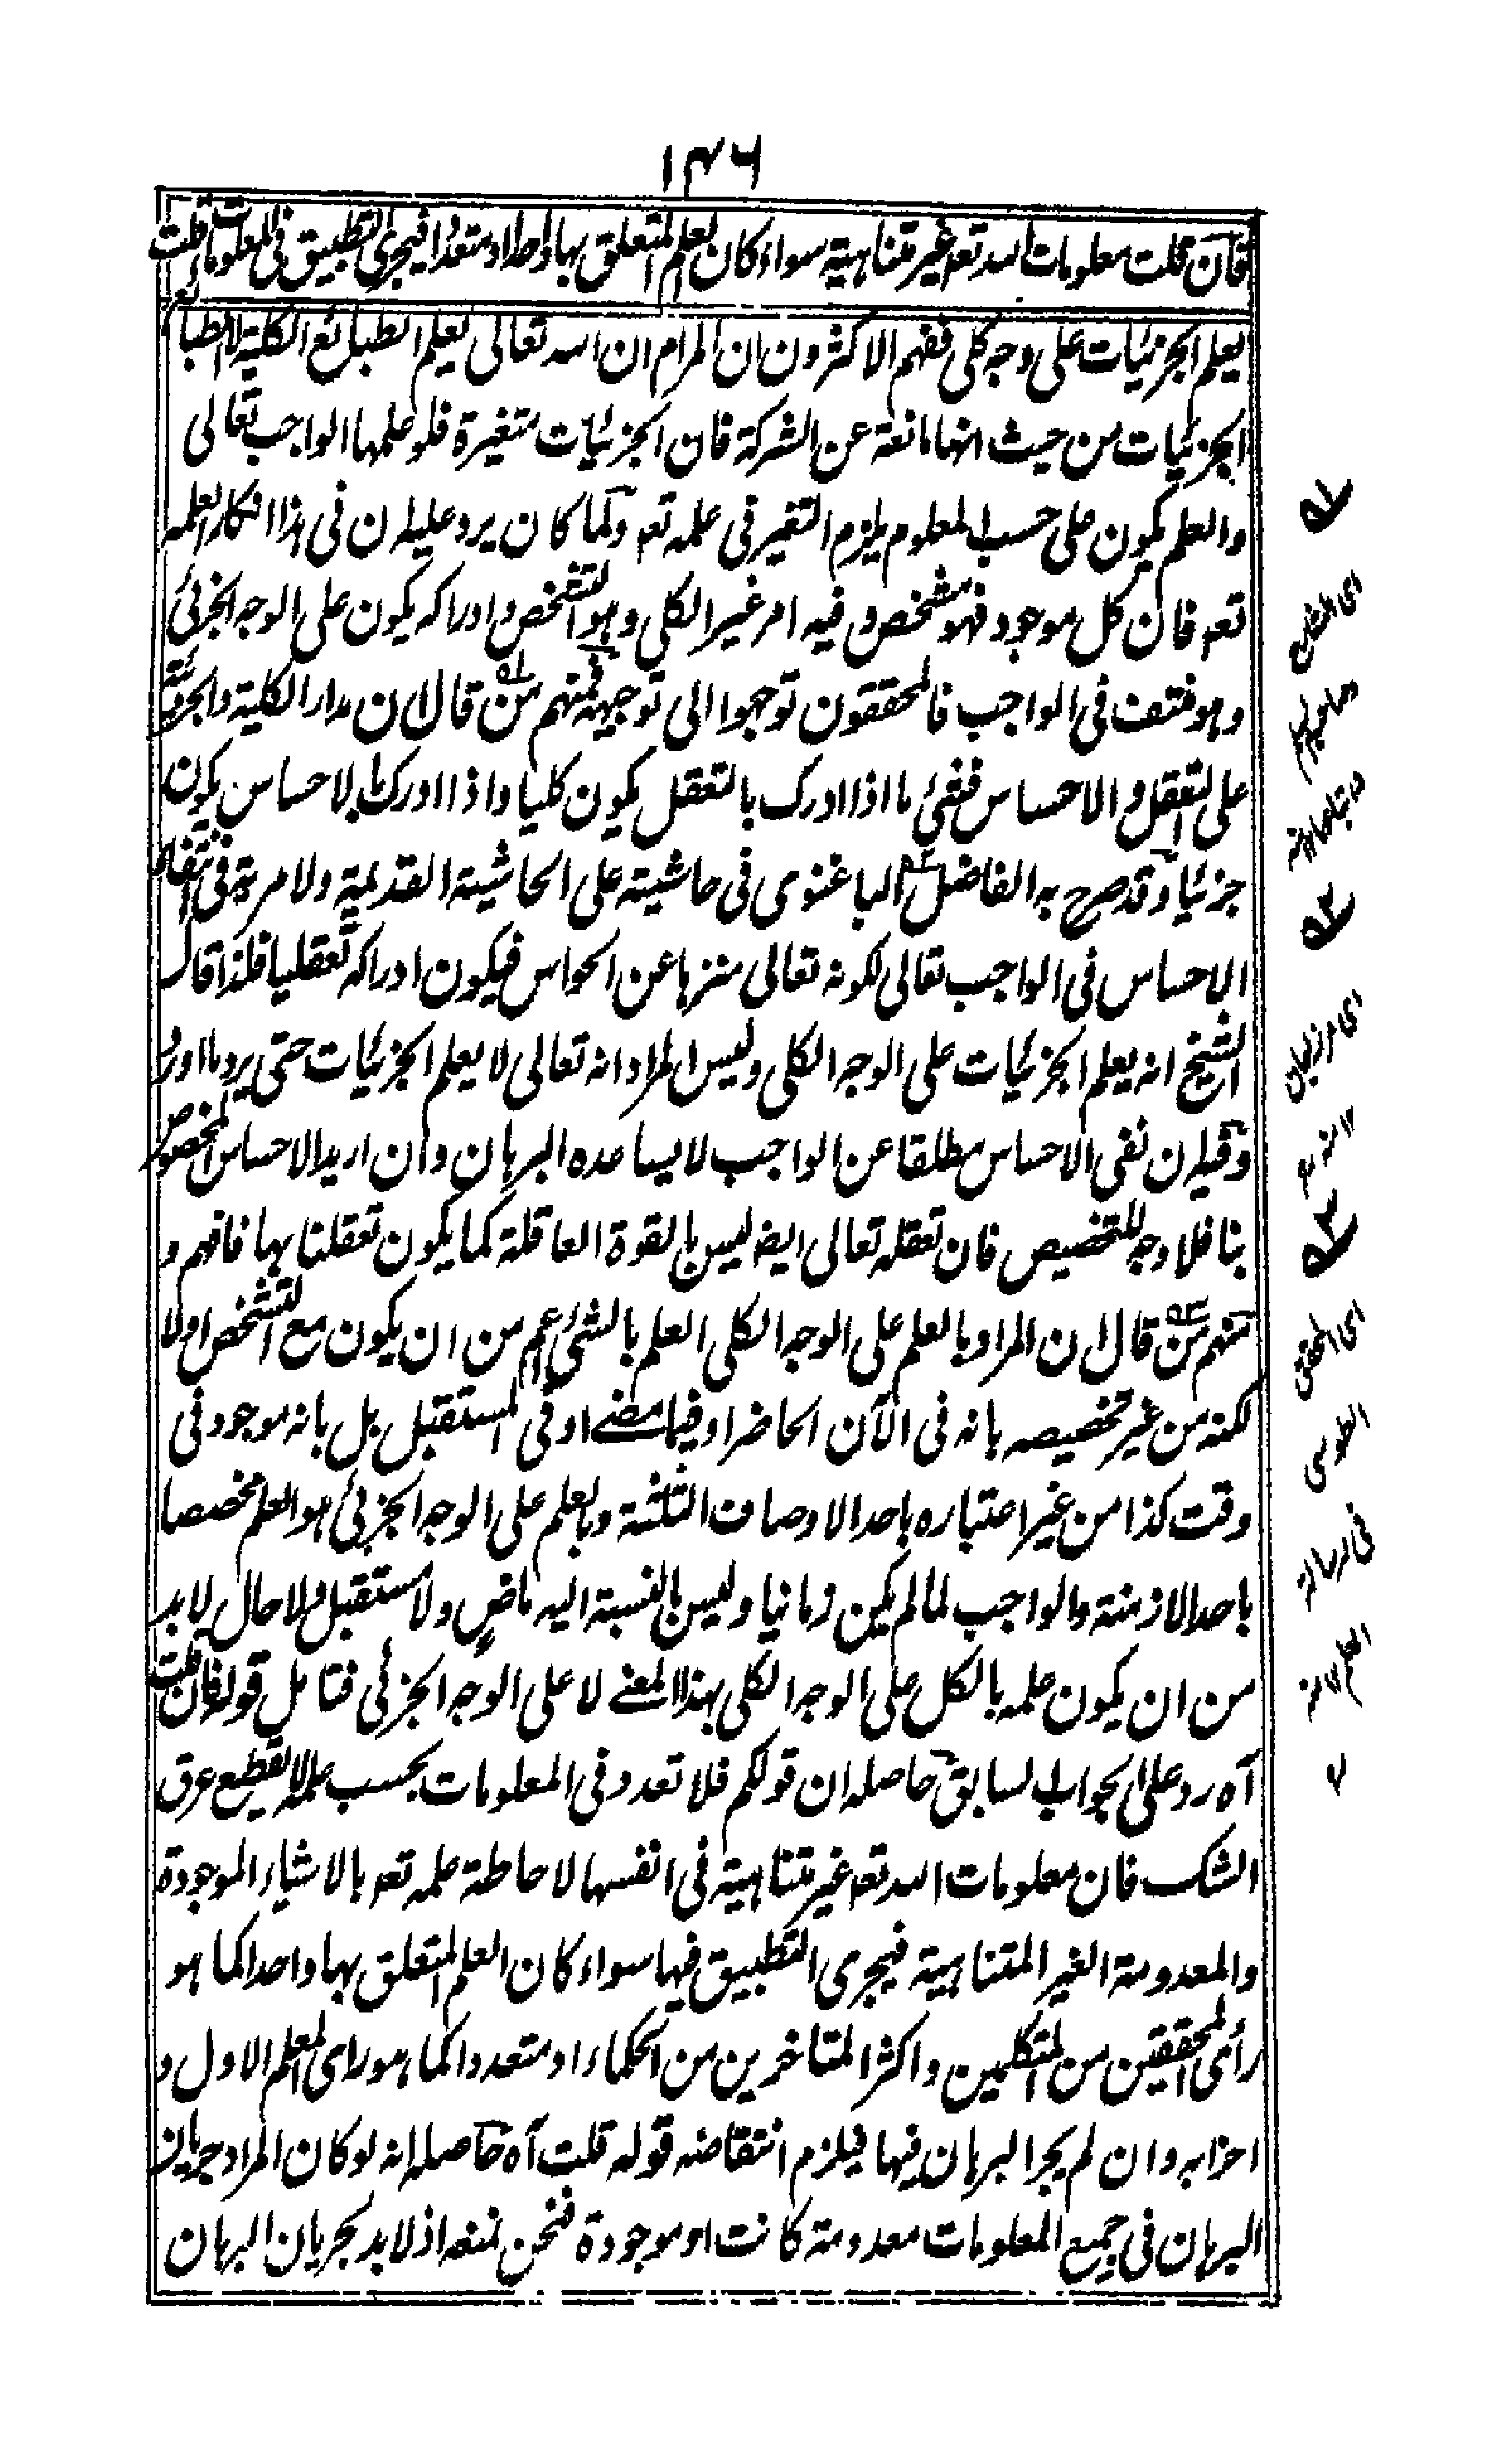 ١٣٦
فان قلت معلومات الله تعہ غير متناهية سواء كان العلم المتعلق بها واحدا او متعددا فيجرى التطبيق فى المعلومات قلت
يعلم الجزئيات على وجه كلى ففهم الاكثرون ان المرام ان الله تعالى يعلم الطبائع الكلية لا الطبائع
الجزئيات من حيث انها مانعة عن الشركة فان الجزئيات متغيرة فلو علمها الواجب تعالى
والعلم يكون على حسب المعلوم يلزم التغير فى علمه تعہ ولما كان يرد عليه ان فى هذا انكار العلمه
تعہ فان كل موجود فهو مشخص و فيه امر غير الكلى وهو التشخص وادراكه يكون على الوجه الجزئى
وهو منتف فى الواجب فالمحققون توجهوا الى توجيهه فمنهم من قال ان مدار الكلية والجزئية
على التعقل والاحساس فشئ ما اذا ادرك بالتعقل يكون كليا واذا ادرك بالاحساس يكون
جزئيا وقد صرح به الفاضل الباغنوى فى حاشيته على الحاشية القديمة ولا مرية فى انتفاء
الاحساس فى الواجب تعالى لكونه تعالى منزها عن الحواس فيكون ادراكه تعقليا فلذا قال
الشيخ انه يعلم الجزئيات على الوجه الكلى وليس المراد انه تعالى لا يعلم الجزئيات حتى يرد ما اورد
وفيه ان نفى الاحساس مطلقا عن الواجب لا يساعده البرهان وان اريد الاحساس المخصوص
بنا فلا وجه للتخصيص فان تعقله تعالى ايضا ليس بالقوة العاقلة كما يكون تعقلنا بها فافهم و
منهم من قال ان المراد بالعلم على الوجه الكلى العلم بالشئ اعم من ان يكون مع التشخص اولا
لكنه من غير تخصيصه بانه فى الآن الحاضر او فيما مضے او فى المستقبل بل بانه موجود فى
وقت كذا من غير اعتباره باحد الاوصاف الثلثة وبالعلم على الوجه الجزئى هو العلم مخصصا
باحد الازمنة والواجب لما لم يكن زمانيا وليس بالنسبة اليه ماضٍ ولا مستقبل ولا حال لا بد
من ان يكون علمه بالكل على الوجه الكلى بهذا المعنے لا على الوجه الجزئى فتامل قوله فان قلت
آه رد على الجواب السابق حاصله ان قولكم فلا تعدد فى المعلومات بحسب علمه لا يقطع عرق
الشك فان معلومات الله تعہ غير متناهية فى انفسها لاحاطة علمه تعہ بالاشياء الموجودة
والمعدومة الغير المتناهية فيجرى التطبيق فيها سواء كان العلم المتعلق بها واحدا كما هو
رأى المحققين من المتكلمين واكثر المتاخرين من الحكماء او متعددا كما هو راى المعلم الاول و
احزابه وان لم يجر البرهان فيها فيلزم انتقاضه قوله قلت آه حاصله انه لو كان المراد جريان
البرهان فى جميع المعلومات معدومة كانت او موجودة فنحن نمنعه اذ لا بد لجريان البرهان
اى الفاضل
اى مرزاجان
١٢ منه
اى المحقق
الطوسى
فى رسالة
العلم ١٢ منه